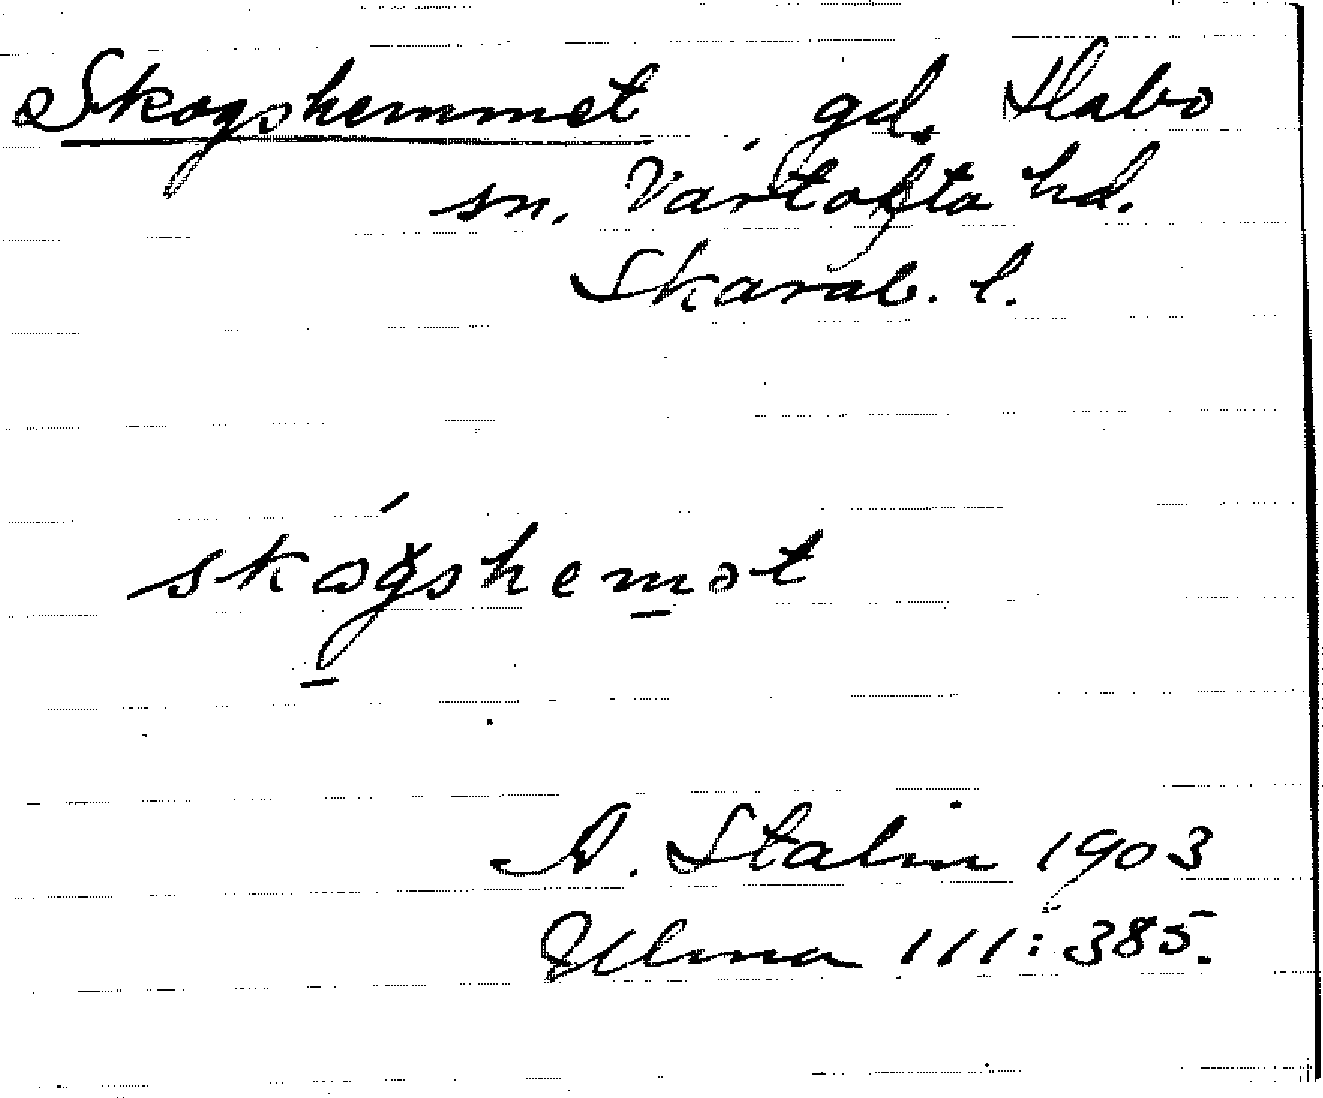 Skogshemmet, gd. Habo
sn. Vartofta hd.
Skarab. l.
skógshemət
A. Stalin 1903
Ulma 111:385.